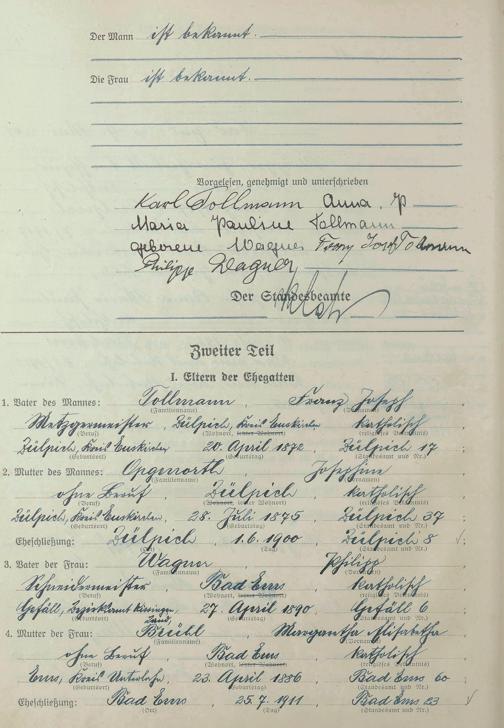 Der Mann ist bekannt.
Die Frau ist bekannt.
Vorgelesen, genehmigt und unterschrieben
Karl Tollmann Anna
Maria Pauline Tollmann
geborene Wagner Franz Josef Tollmann
Philipp Wagner
Der Standesbeamte
Zweiter Teil
I. Eltern der Ehegatten
1. Vater des Mannes: Tollmann, Franz Joseph
(Familienname) (Vornamen)
Metzgermeister, Zülpich, Kreis Euskirchen katholisch
(Beruf) (Wohnort, letzter Wohnort) (religiöses Bekenntnis)
Zülpich, Kreis Euskirchen 20. April 1872, Zülpich 17;
(Geburtsort) (Geburtstag) (Standesamt und Nr.)
2. Mutter des Mannes: Josephine
(Familienname) (Vornamen)
ohne Beruf, Zülpich, katholisch
(Beruf) (Wohnort, letzter Wohnort) (religiöses Bekenntnis)
Zülpich, Kreis Euskirchen, 28. Juli 1875, Zülpich 37;
(Geburtsort) (Geburtstag) (Standesamt und Nr.)
Eheschließung: Zülpich, 1.6.1900, Zülpich 8;
(Ort) (Tag) (Standesamt und Nr.)
3. Vater der Frau: Wagner, Philipp
(Familienname) (Vornamen)
Schneidermeister, Bad Ems, katholisch
(Beruf) (Wohnort, letzter Wohnort) (religiöses Bekenntnis)
Gefäll, Bezirksamt Kissingen, 27. April 1890, Gefäll 6;
(Geburtsort) (Geburtstag) (Standesamt und Nr.)
4. Mutter der Frau: Margaretha Elisabetha
(Familienname) (Vornamen)
ohne Beruf, Bad Ems, katholisch
(Beruf) (Wohnort, letzter Wohnort) (religiöses Bekenntnis)
Ems, Kreis Unterlahn, 23. April 1886, Bad Ems 60;
(Geburtsort) (Geburtstag) (Standesamt und Nr.)
Eheschließung: Bad Ems, 25.7.1911, Bad Ems 23
(Ort) (Tag) (Standesamt und Nr.)